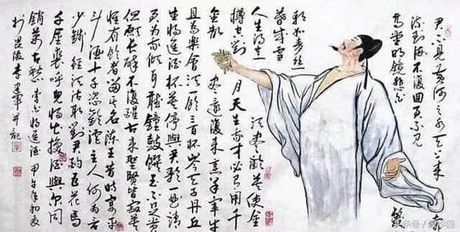 君不見黃河之水天上來奔
流到海不復回君不見
高堂明鏡悲白髮
朝如青絲
暮成雪
人生得意
須盡歡莫使金
樽空對月天生我才必有用千
金散盡還復來烹羊宰牛
且為樂會須一飲三百杯岑夫子丹丘
生將進酒杯莫停與君歌一曲請
君為我傾耳聽鐘鼓饌玉不足貴
但願長醉不復醒古來聖賢皆寂寞
惟有飲者留其名陳王昔時宴平樂
斗酒十千恣歡謔主人何為言
少錢徑須沽取對君酌五花馬
千金裘呼兒將出換美酒與爾同
銷萬古愁 李白將進酒 甲午年初夏
头条号